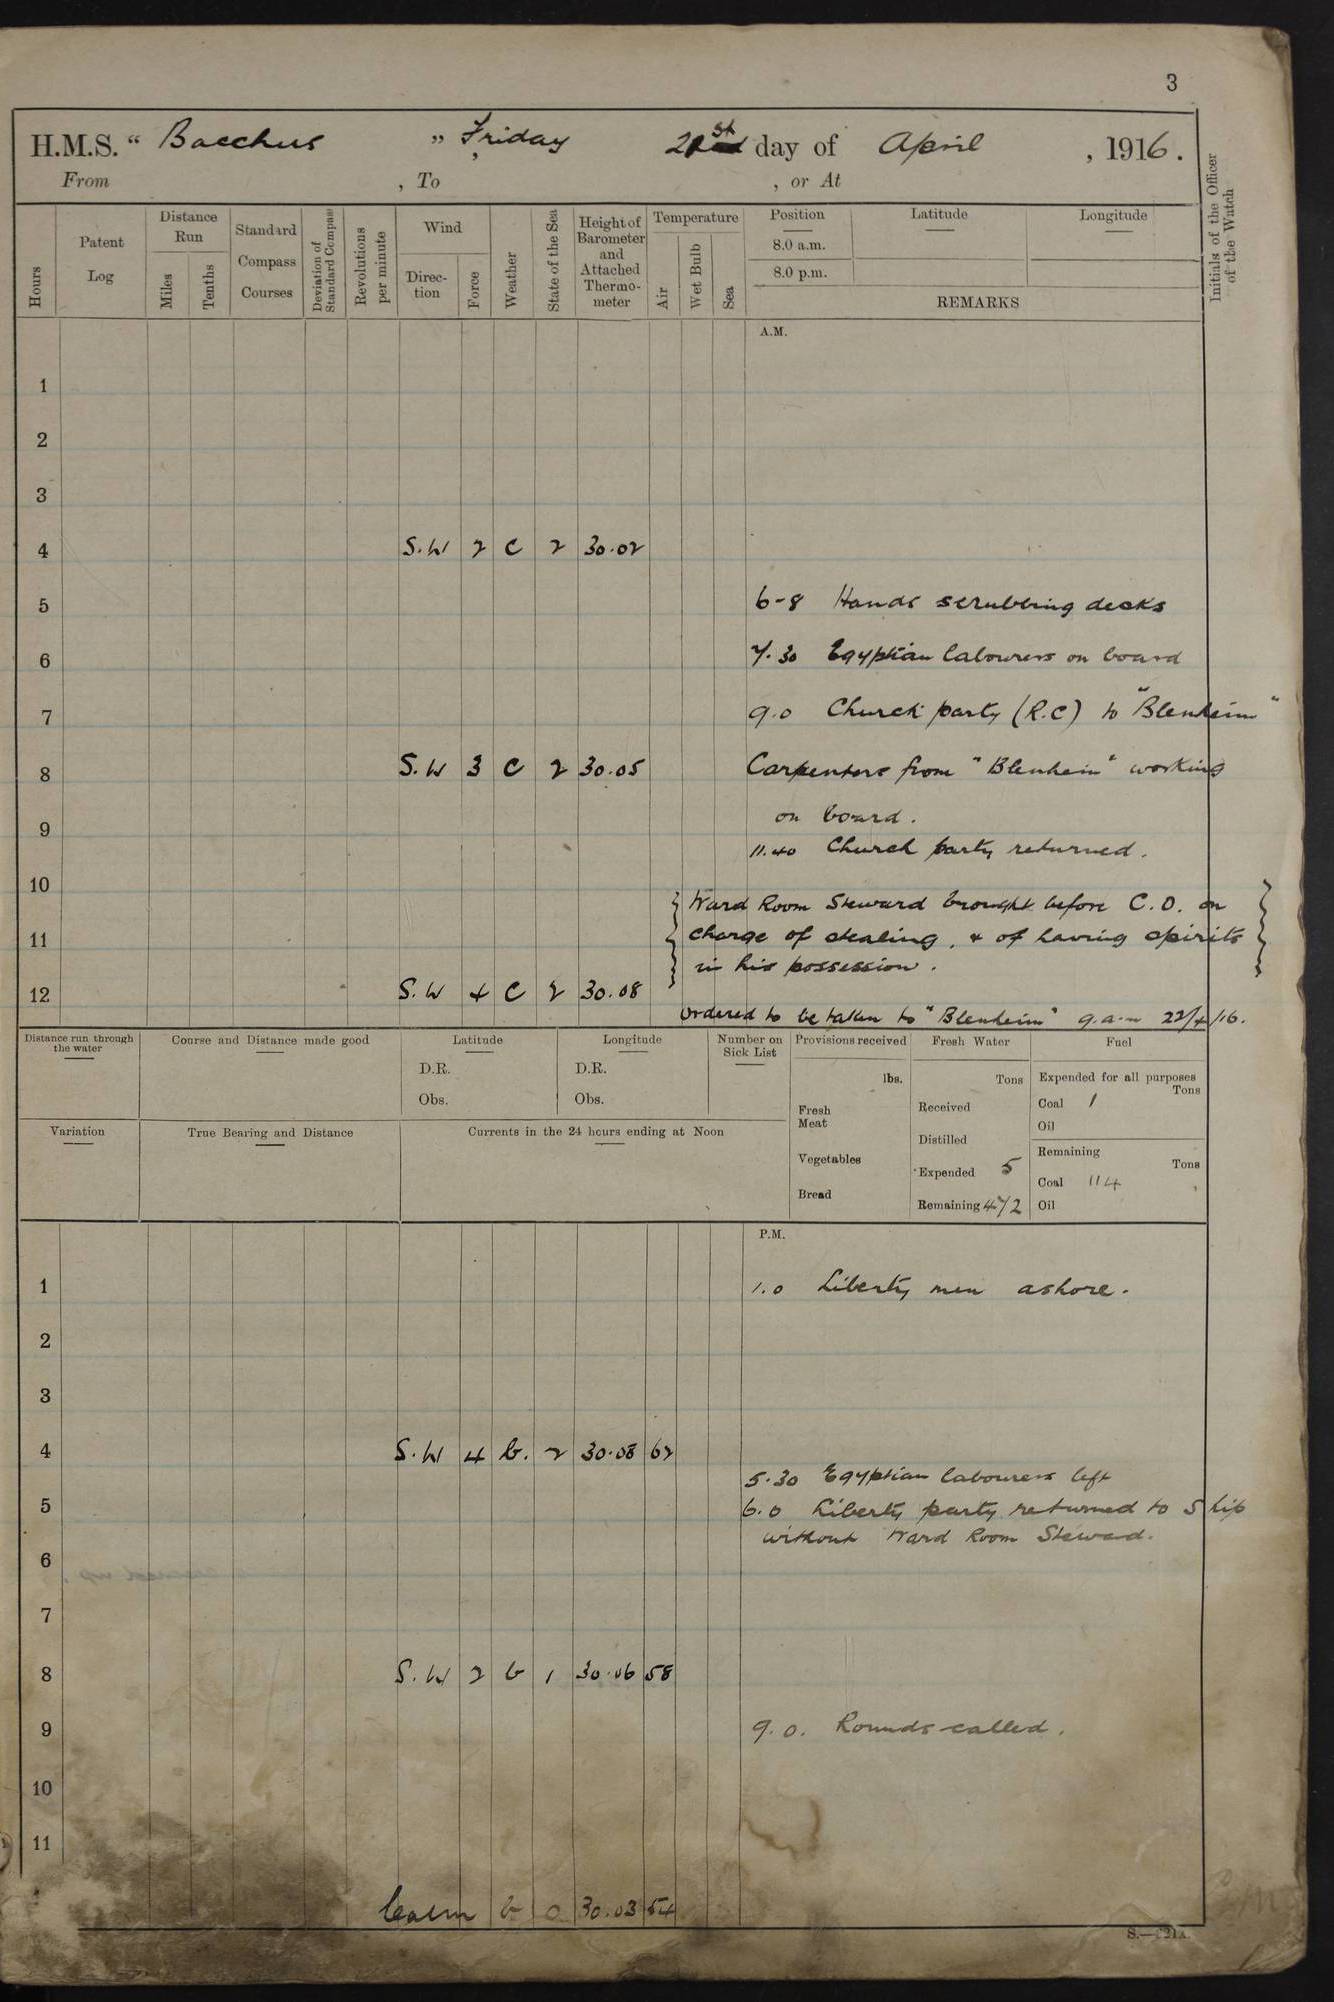 3
H.M.S. “ Bacchus ” Friday 21st day of April , 1916.
From , To , or At
Hours
Patent Log
Distance Run
Miles
Tenths
Standard Compass Courses
Deviation of Standard Compass
Revolutions per minute
Wind
Direc-tion
Force
Weather
State of the Sea
Height of Barometer and Attached Thermo-meter
Temperature
Air
Wet Bulb
Sea
Position Latitude Longitude
8.0 a.m.
8.0 p.m.
REMARKS
Initials of the Officer of the Watch
A.M.
1
2
3
4 S.W 2 C 2 30.02
5 6-8 Hands scrubbing decks
6 7.30 Egyptian labourers on board
7 9.0 Church party (R.C) to "Blenheim"
8 S.W 3 C 2 30.05 Carpenters from "Blenheim" working
on board.
9 11.40 Church party returned.
10 Ward Room Steward brought before C.O. on
11 charge of stealing, & of having spirits
in his possession.
12 S.W 4 C 2 30.08
Ordered to be taken to "Blenheim" 9.a.m 22/4/16.
Distance run through the water
Course and Distance made good
Latitude
D.R.
Obs.
Longitude
D.R.
Obs.
Number on Sick List
Provisions received
lbs.
Fresh Meat
Vegetables
Bread
Fresh Water
Tons
Received
Distilled
Expended 5
Remaining 472
Fuel
Expended for all purposes
Tons
Coal 1
Oil
Remaining
Tons
Coal 114
Oil
Variation
True Bearing and Distance
Currents in the 24 hours ending at Noon
P.M.
1 1.0 Liberty men ashore.
2
3
4 S.W 4 b. 2 30.08 62
5.30 Egyptian labourers left
5 6.0 Liberty party returned to Ship
without Ward Room Steward.
6
7
8 S.W 2 b 1 30.06 58
9 9.0. Rounds called.
10
11
Calm b 0 30.03 54